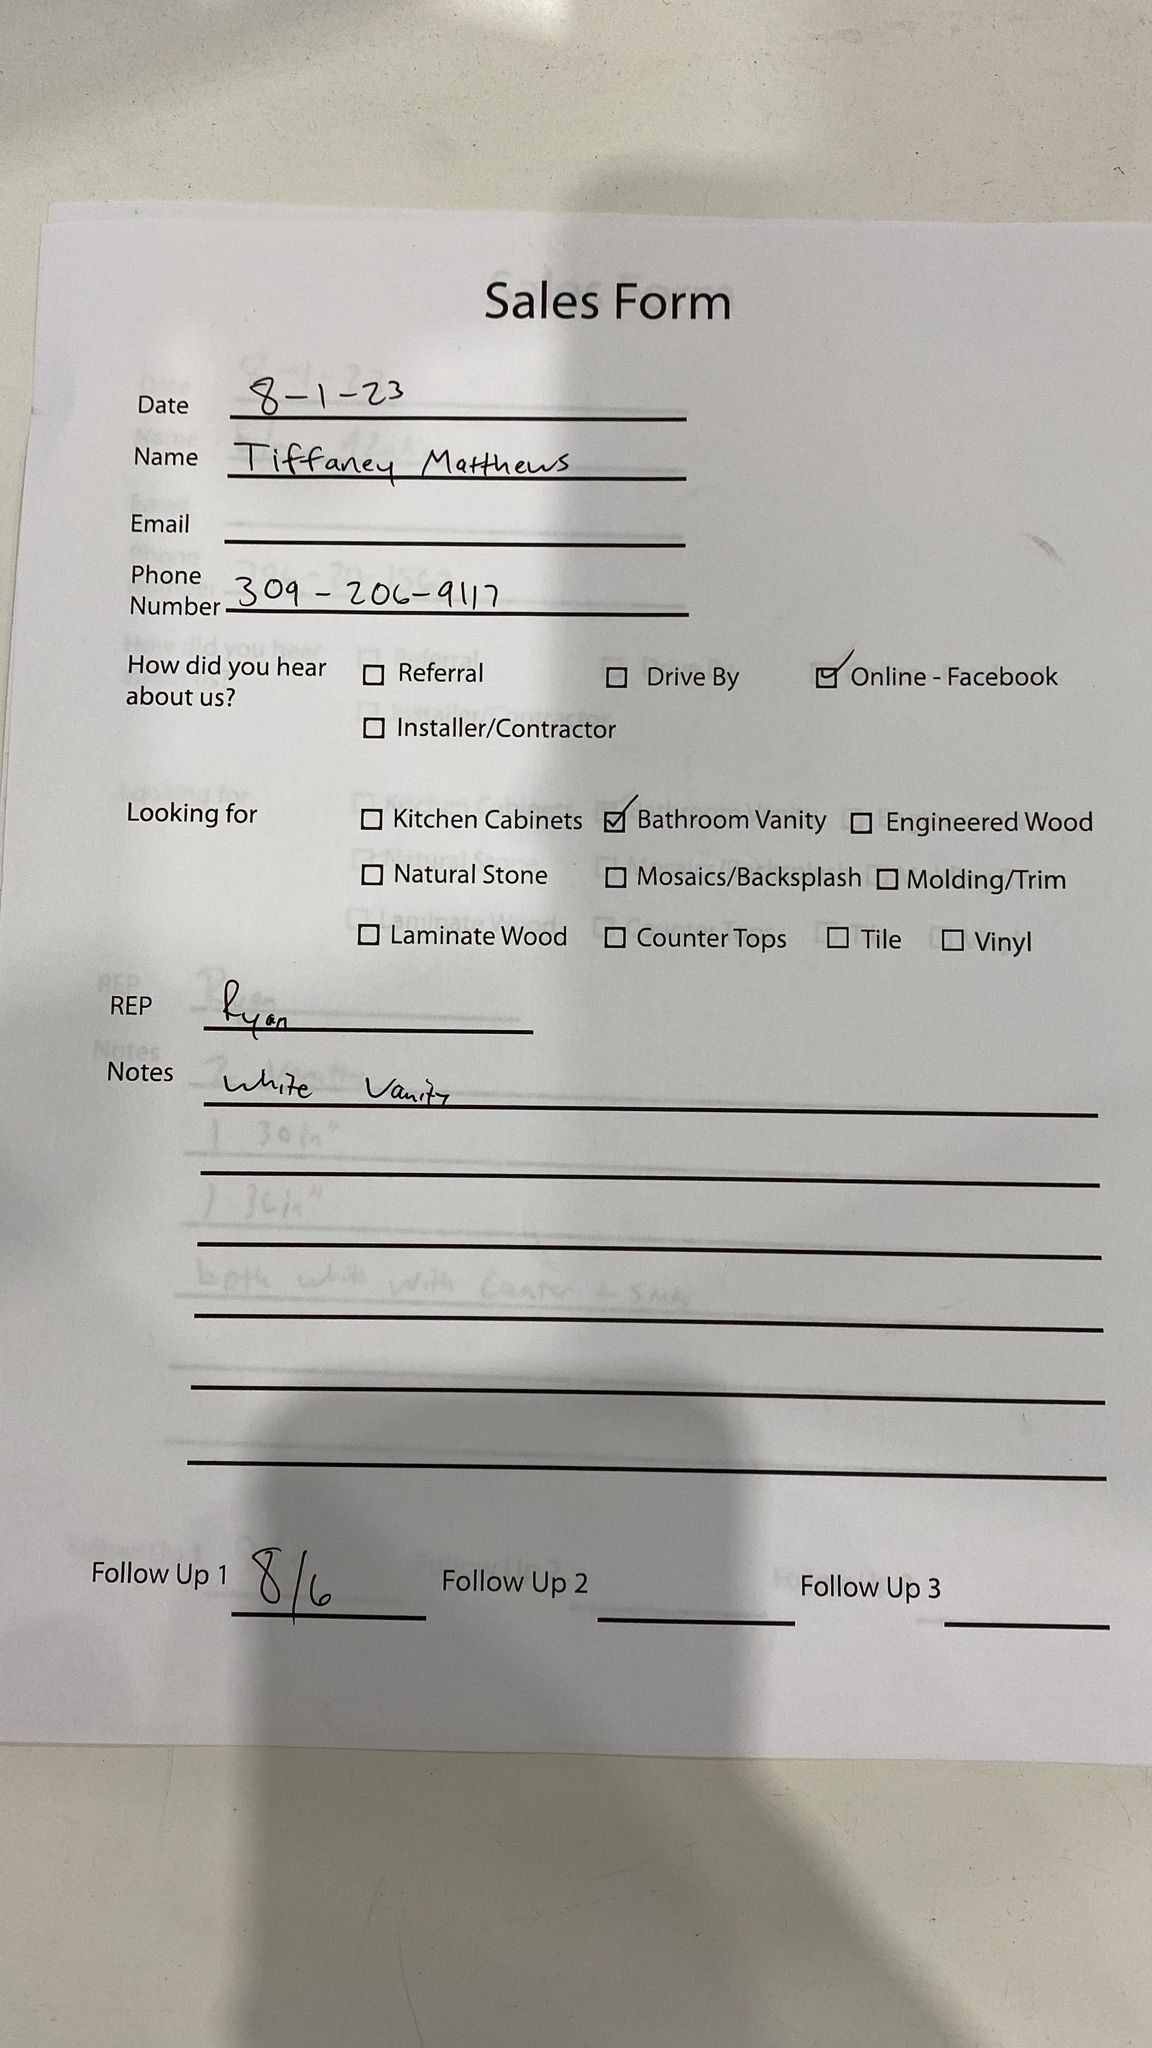 Sales Form
Date 8-1-23
Name Tiffaney Matthews
Email
Phone
Number 309-206-9117
How did you hear about us? ☐ Referral ☐ Drive By ☑ Online - Facebook
☐ Installer/Contractor
Looking for ☐ Kitchen Cabinets ☑ Bathroom Vanity ☐ Engineered Wood
☐ Natural Stone ☐ Mosaics/Backsplash ☐ Molding/Trim
☐ Laminate Wood ☐ Counter Tops ☐ Tile ☐ Vinyl
REP Ryan
Notes White Vanity
1 30in"
1 36in"
both white with
Follow Up 1 8/6 Follow Up 2 Follow Up 3